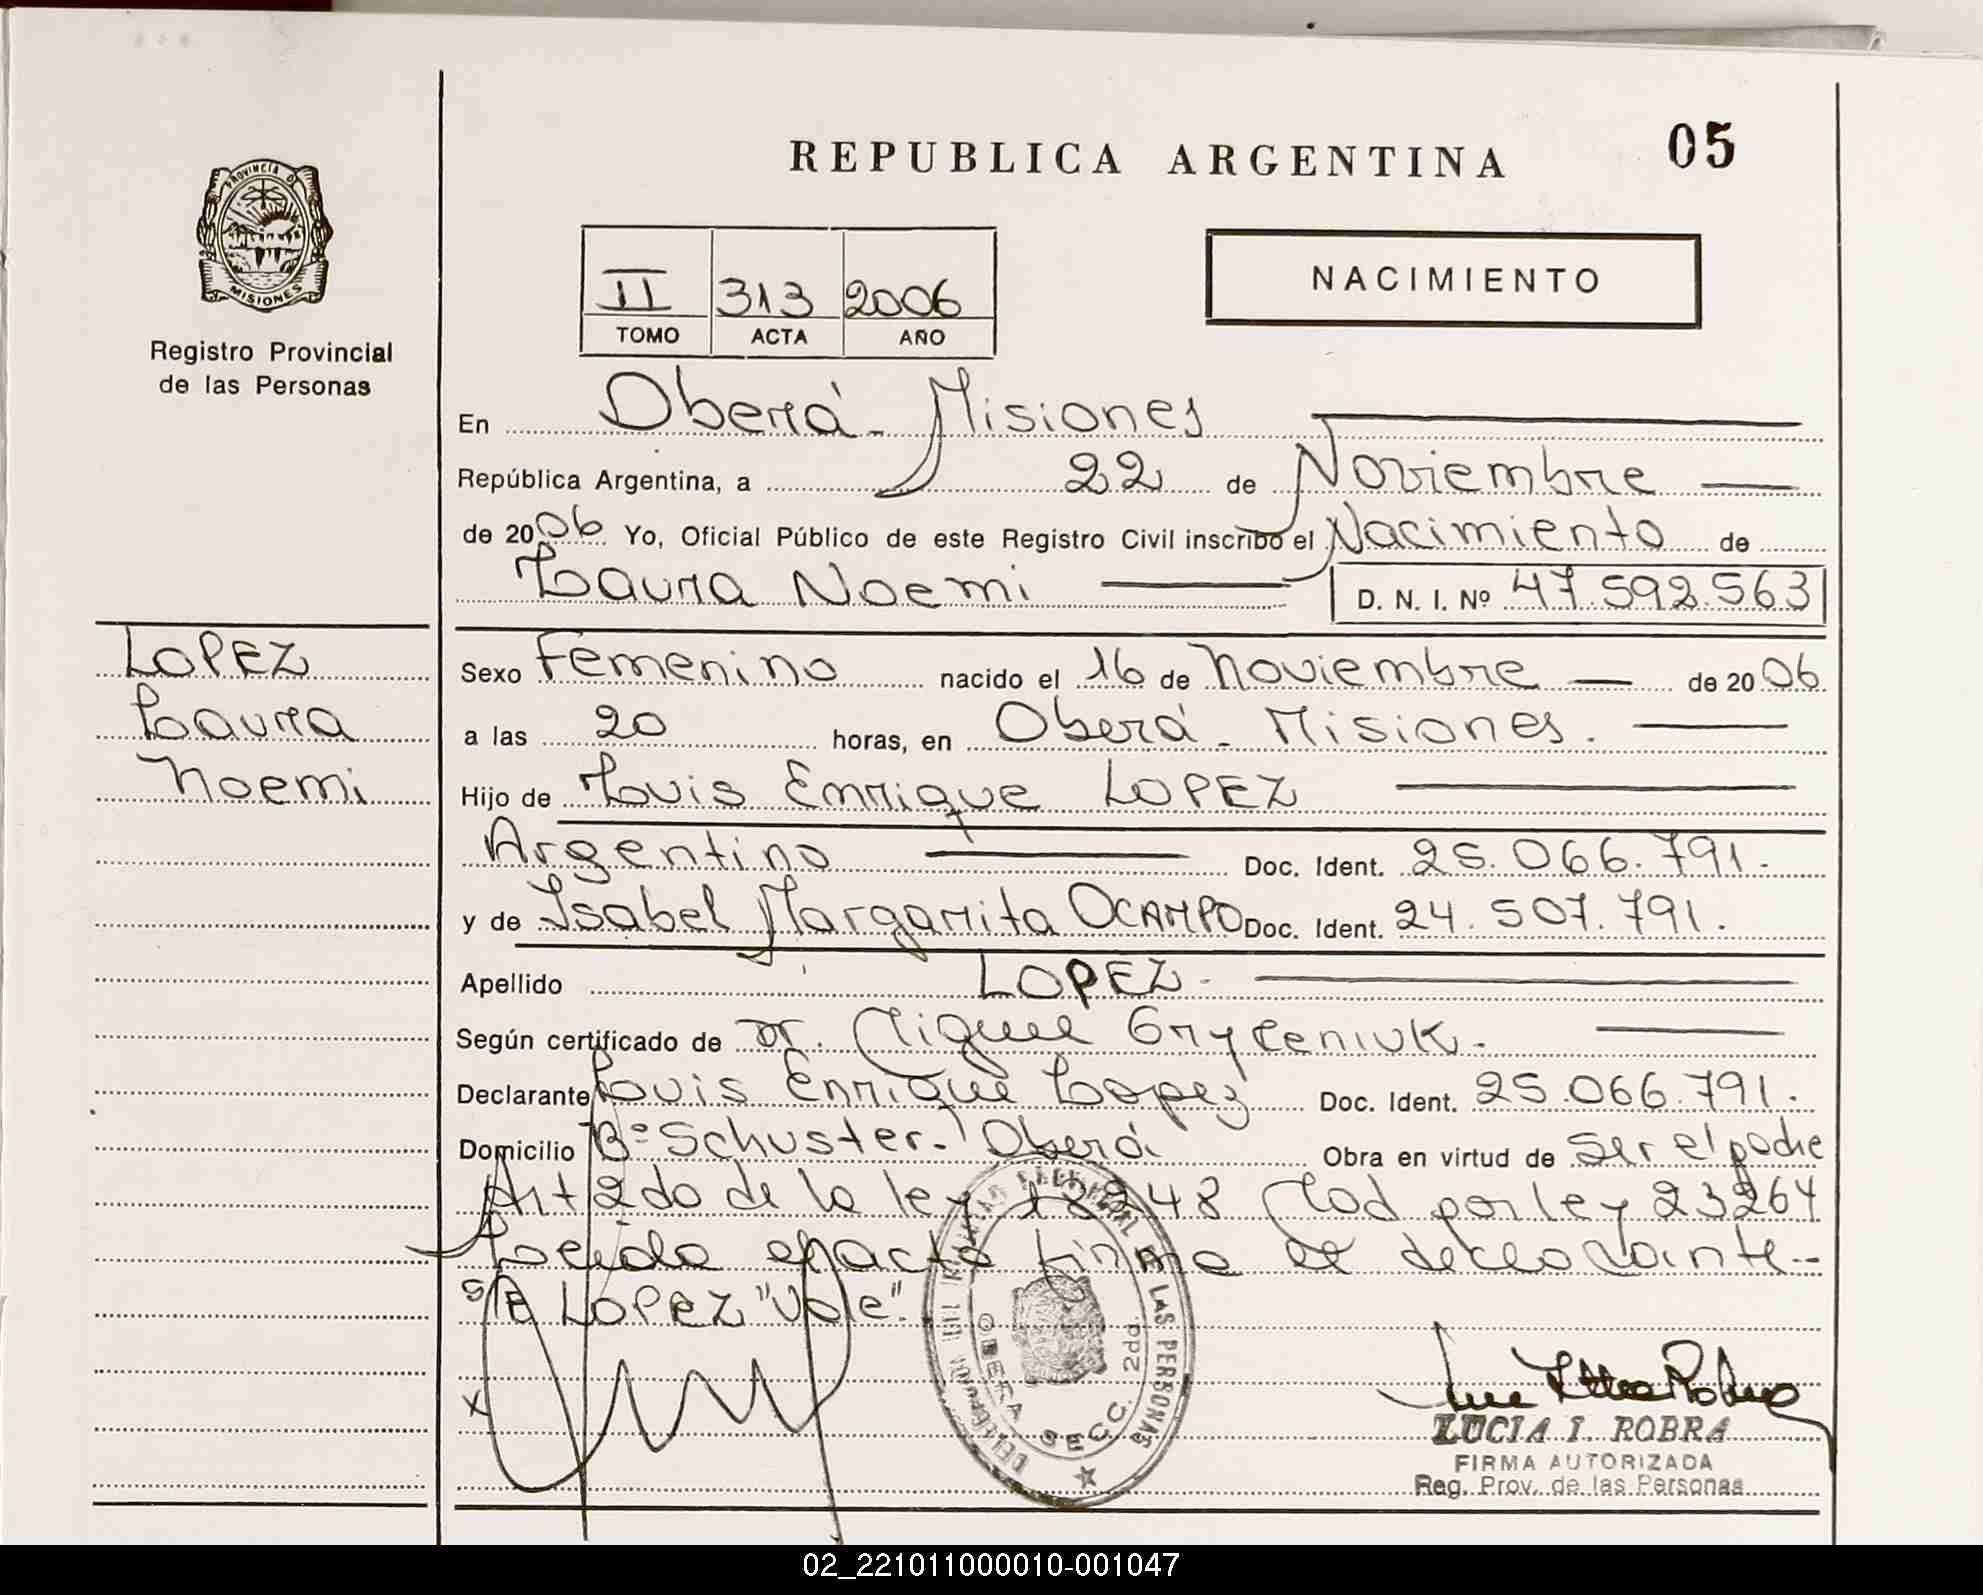 REPUBLICA ARGENTINA
05
PROVINCIA D
MISIONES
Registro Provincial
de las Personas
II 313 2006
TOMO ACTA AÑO
NACIMIENTO
En Oberá - Misiones
República Argentina, a 22 de Noviembre
de 2006 Yo, Oficial Público de este Registro Civil inscribo el Nacimiento de
Laura Noemi
D. N. I. Nº 47.592.563
LOPEZ
Laura
Noemi
Sexo Femenino nacido el 16 de Noviembre de 2006
a las 20 horas, en Oberá - Misiones.
Hijo de Louis Enrique LOPEZ
Argentino Doc. Ident. 25.066.791.
y de Isabel Margarita OCAMPO Doc. Ident. 24.507.791.
Apellido LOPEZ -
Según certificado de Dr. Miguel Gryceniuk.
Declarante Louis Enrique Lopez Doc. Ident. 25.066.791.
Domicilio Bº Schuster - Oberá Obra en virtud de ser el padre
Art 2do de la ley 18248 Mod por ley 23264
Leida acta firma el declarante -
S/R LOPEZ "Vale".
LAS PERSONAS
OBERA
SECC. 2da
LUCIA I. ROBRA
FIRMA AUTORIZADA
Reg. Prov. de las Personas
02_221011000010-001047